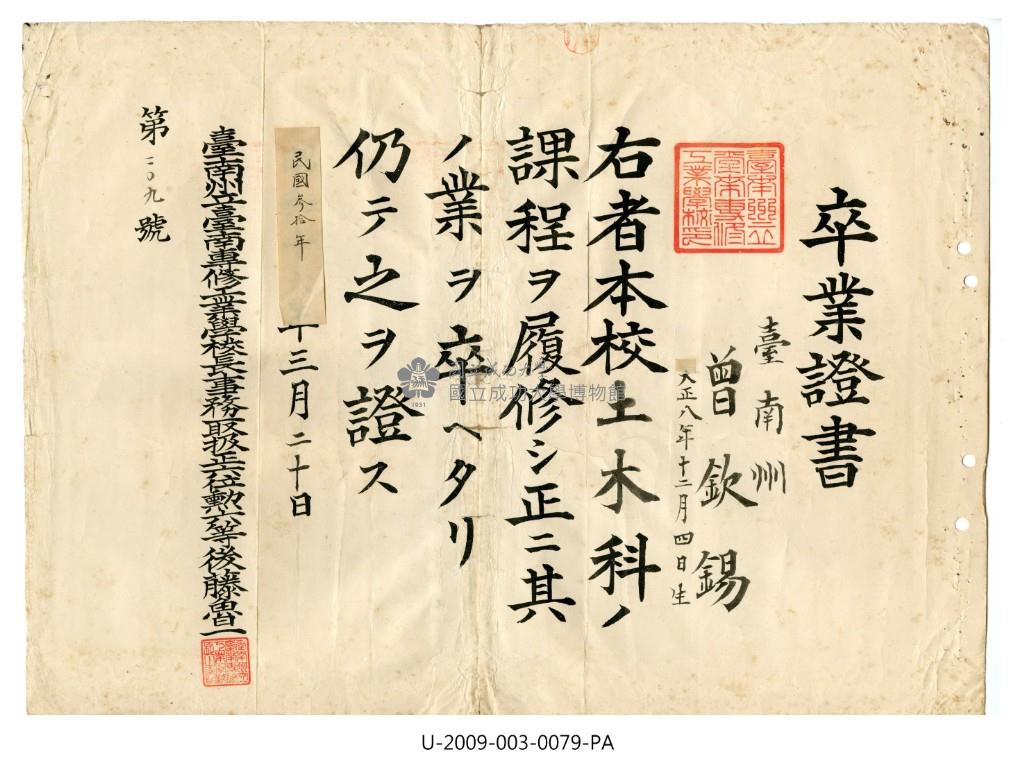 卒業證書
臺南州
曾欽錫
大正八年十二月四日生
臺南州立
臺南專修
工業學校印
右者本校土木科ノ
課程ヲ履修シ正ニ其
ノ業ヲ卒ヘタリ
仍テ之ヲ證ス
民國叁拾年
年三月二十日
臺南州立臺南專修工業學校長事務取扱正六位勲六等後藤魯一
第二〇九號
國立成功大學博物館
1931
U-2009-003-0079-PA